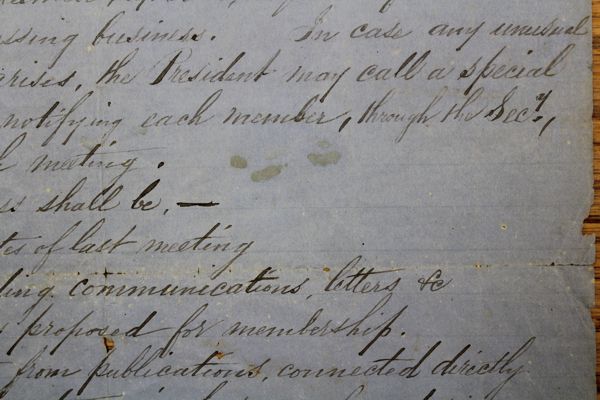 essing business. In case any unusual
arises, the President may call a special
notifying each member, through the Secy.,
meeting.
ss shall be, —
tes of last meeting
ding communications, letters &c
proposed for membership.
from publications, connected directly